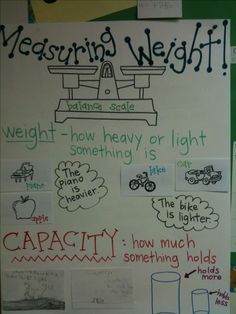 Measuring Weight!
balance scale
weight - how heavy or light
something is
piano
The
piano
is
heavier.
bike
car
apple
The bike
is
lighter.
CAPACITY: how much
something holds
holds
more
holds
less